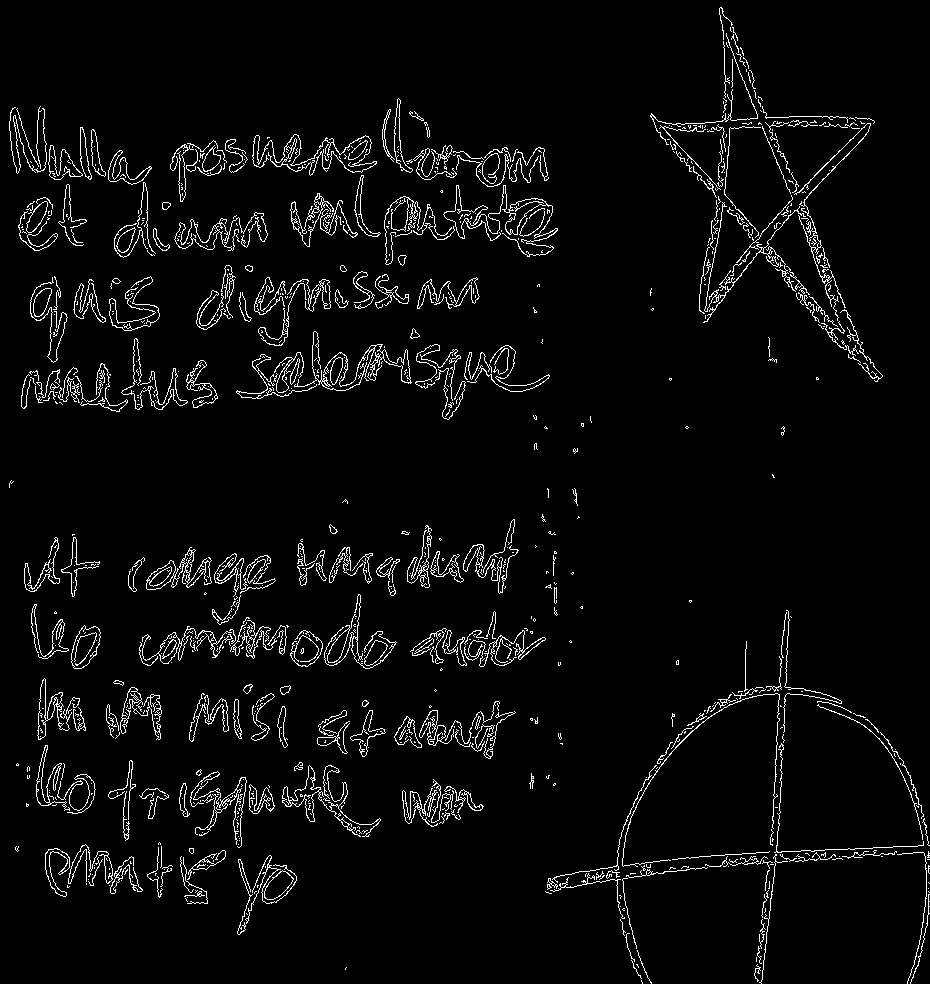 Nulla posuere lorem
et diam vulputate
quis dignissim
metus scelerisque
Ut congue tincidunt
leo commodo auctor
in in nisi sit amet
leo tristique non
mattis yo